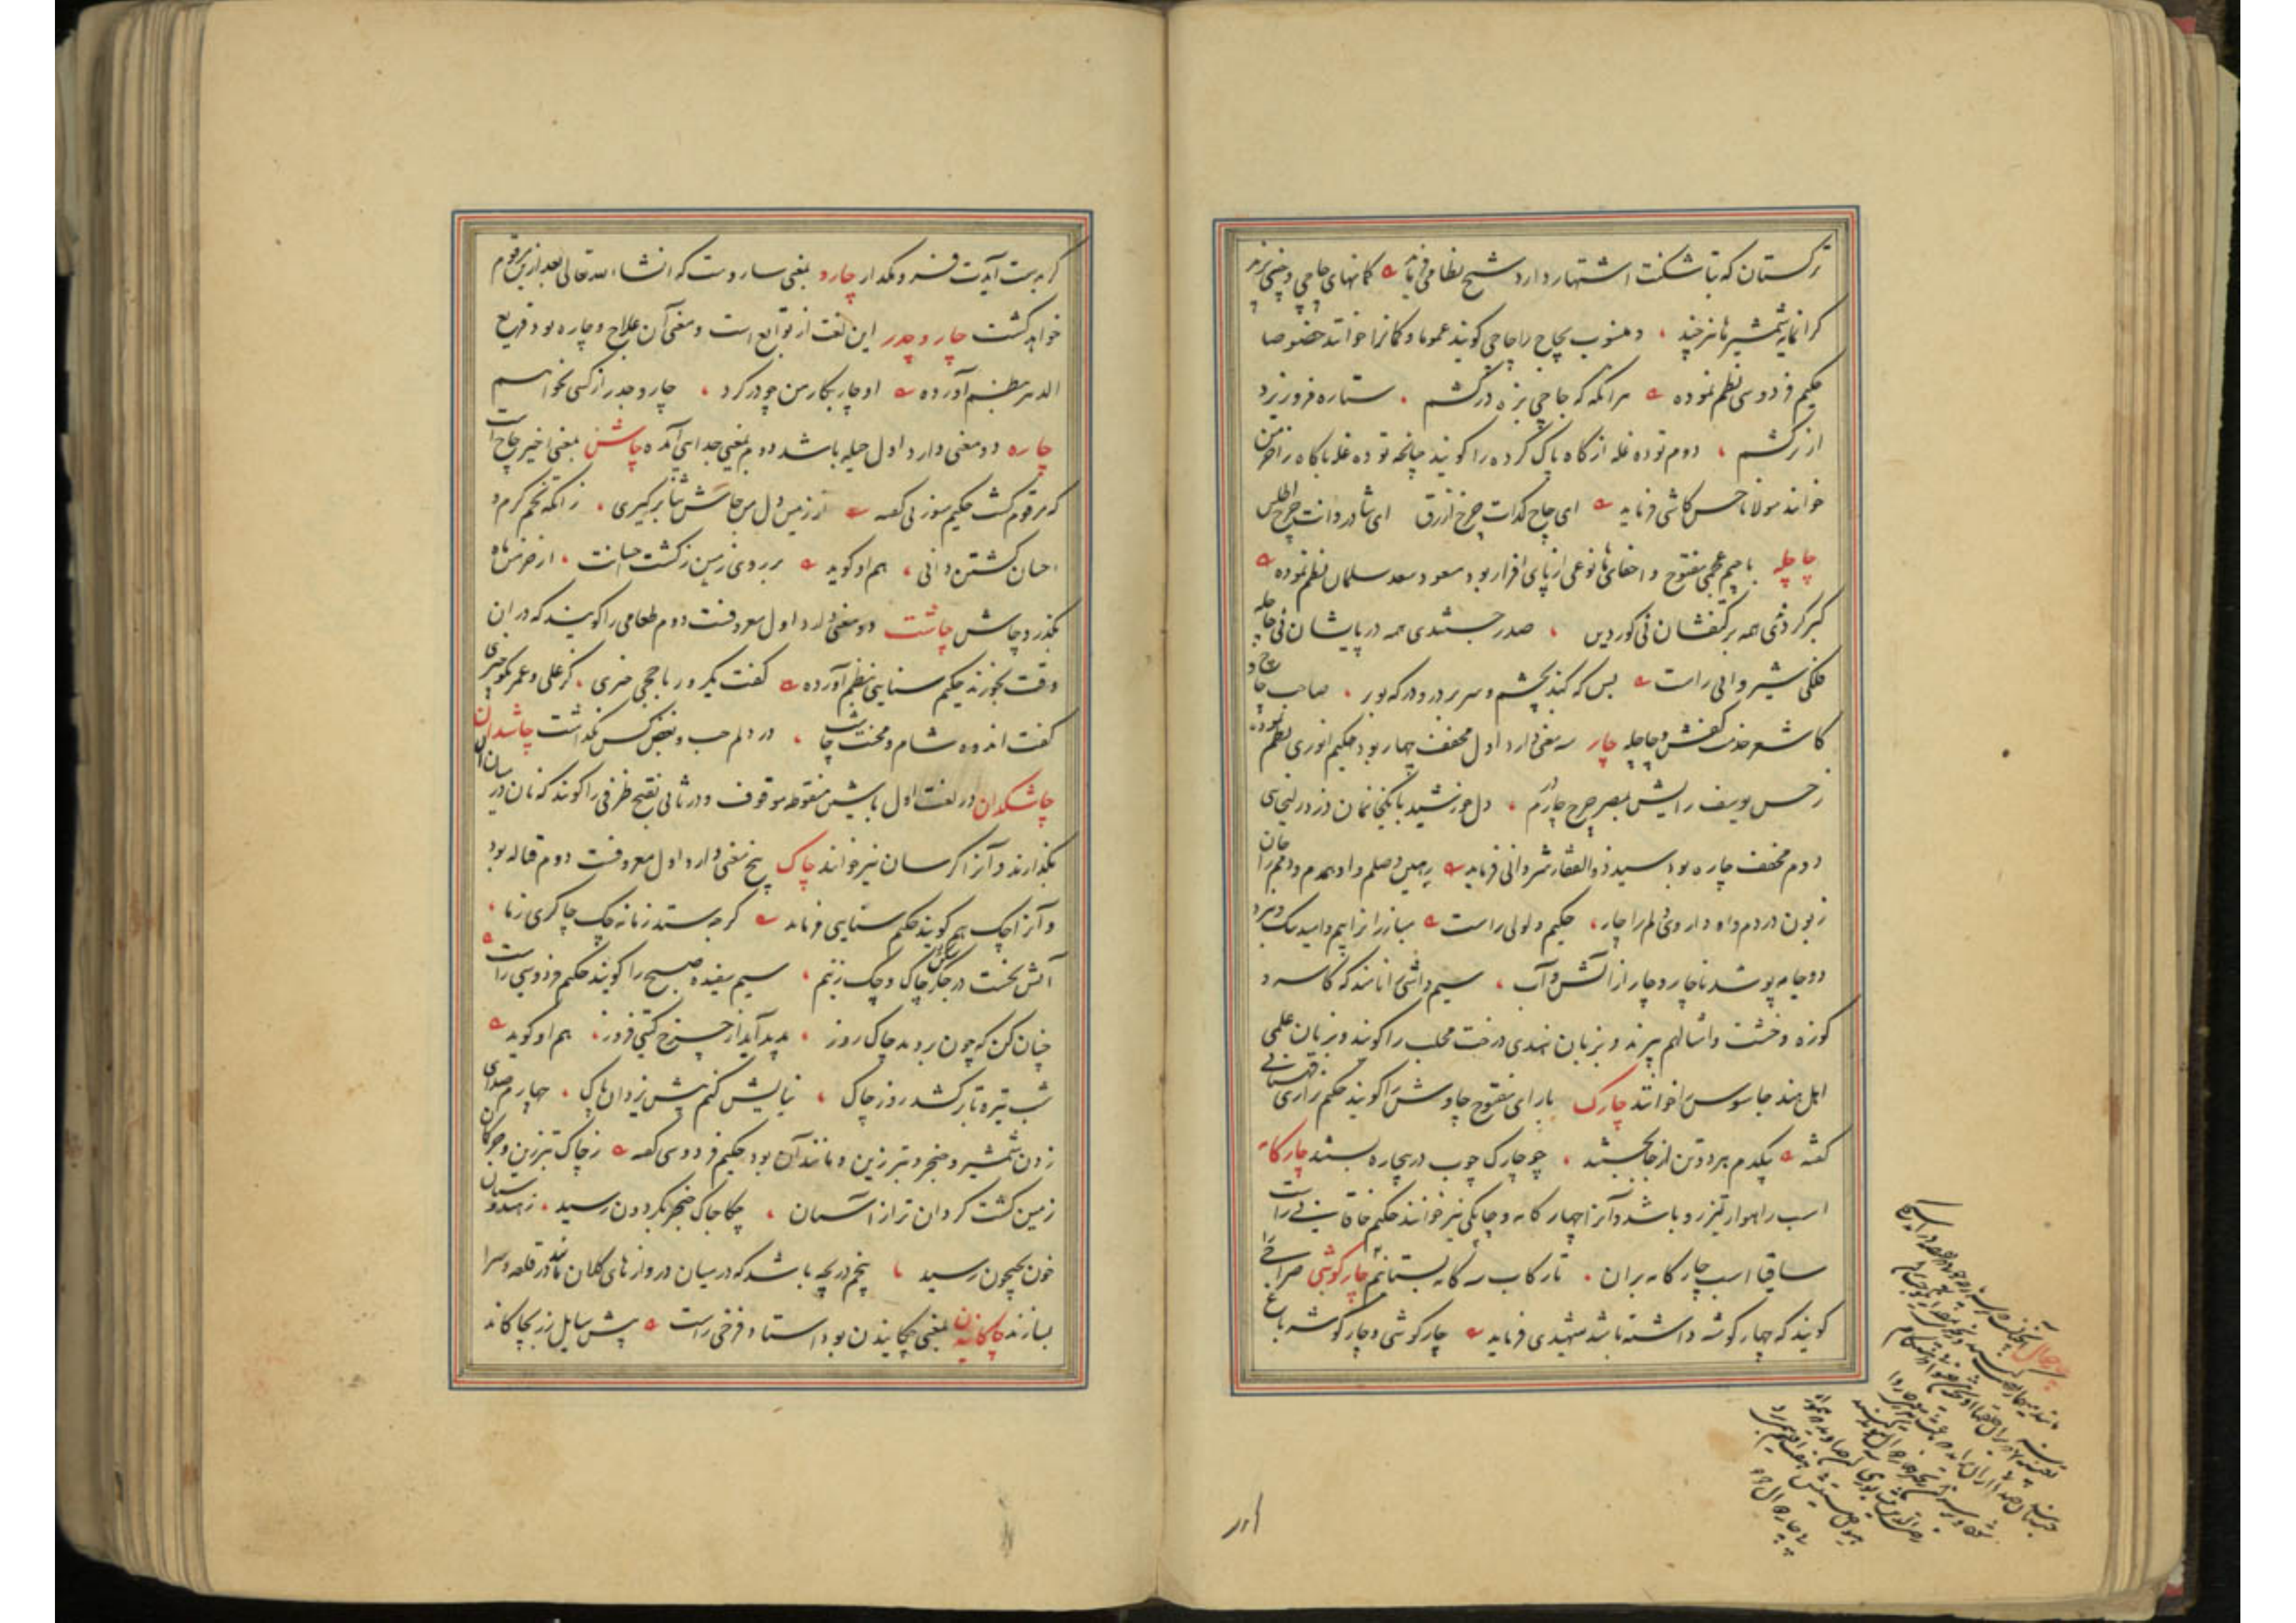 ترکستان که بتاشکنت اشتهار دارد شیخ نظامی فرماید کمانهای چاچی و چینی پرند
گرانمایه شمشیرها نیز چند و منسوب بچاچ را چاچی گویند عموما و کمانرا خوانند خصوصا
حکیم فردوسی نظم نموده هر آنگه که چاچی بزه درکشم ستاره فروریزد
از ترکشم دوم توده غله از کاه پاک کرده را گویند چنانچه توده غله باکاه را خرمن
خوانند مولانا حسن کاشی فرماید ای چاچ کدات چرخ ازرق ای شادروانت چرخ اطلس
چاچله با جیم عجمی مفتوح و اخفای ها نوعی از پای افزار بود مسعود سعد سلمان نظم نموده
گبر کردنی همه بر کتفشان نی کوردین صدر جستندی همه در پایشان نی چاچله
فلکی شیروانی راست بس که کند بچشم و سر بر در و درگه تو بر صاحب چاچ و
کاشغر خدمت کفش و چاچله چار سه معنی دارد اول مخفف چهار بود حکیم انوری نظم نموده
ز حسن یوسف رایش بمصر چرخ چارم دل خورشید با
دوم مخفف چاره بود سید ذوالفقار شروانی فرماید رهین وصلم و او همدم و دلم را جان
زبون دردم و او داروی دلم را چار حکیم ولولی راست مبارزانرا بیم و امید ننگ و نبرد
دو جامه پوشد ناچار و چار از آتش و آب سیم داشی را نامند که کاسه و
کوزه و خشت و امثالهم پزند و بزبان هندی درخت محلب را گویند و بزبان علمی
اهل هند جاسوس را خوانند چارک با رای مفتوح چاوش را گویند حکیم نزاری قهستانی
گفته بیکدم هر دو تن از جا بجستند چو چارک چوب در بیچاره بستند چارگانه
اسب راهوار تیزرو باشد و آنرا چهارگانه و چارگی نیز خوانند حکیم خاقانی راست
ساقیا اسب چارگانه بران تا رکاب سه گانه بستانیم چارگوشی صراحی را
گویند که چهار گوشه داشته باشد شهیدی فرماید چارگوشی و چارگوشه باغ
گر بدست آیدت فرو مگذار چارو بمعنی ساروست که انشاء الله تعالی بعد ازین مرقوم
خواهد گشت چار و چدر این لغت از توابع است و معنی آن علاج و چاره بود قریع
الدهر بنظم آورده او چاربکار من چو در کرد چار و چدر از کسی نخواهم
چاره دو معنی دارد اول حیله باشد دوم بمعنی جدایی آمده چاش بمعنی اخیر چاچ است
که مرقوم گشت حکیم سوزنی گفته از زمین دل من چاش ثنا برگیری زانکه تخم کرم و
احسان کشتن دانی هم او گوید بر روی زمین ز کشت احسانت از خرمن ماه
بگذرد چاش چاشت دو معنی دارد اول معروفست دوم طعامی را گویند که در آن
وقت بخورند حکیم سنایی بنظم آورده گفت یکروز با جحی حیزی کز علی و عمر بگو چیزی
گفت اندوه شام و محنت چاشت در دلم حب و بغض کس نگذاشت چاشدان
چاشکدان در لغت اول با شین منقوطه موقوف و در ثانی بفتح ظرفی را گویند که نان در میان آن
بگذارند و آنرا کرسان نیز خوانند چاک پنج معنی دارد اول معروفست دوم قباله بود
و آنرا چک هم گویند حکیم سنایی فرماید گر چه بستد زمانه چک چاکری زما
آتش بخت در جگر چاک و چک زنیم سیم سفیده صبح را گویند حکیم فردوسی راست
چنان کن که چون بردمد چاک روز پدید آید از چرخ گیتی فروز هم او گوید
شب تیره تا برکشد روز چاک نیایش کنم پیش یزدان پاک چهارم صدای
زدن شمشیر و خنجر و تبرزین و مانند آن بود حکیم فردوسی گفته ز چاک تبرزین و جر کمان
زمین گشت گردان تر از آسمان چکاچاک خنجر بگردون رسید ز هندوستان
خون بجیحون رسید پنجم دریچه باشد که در میان دروازهای کلان مانند در قلعه و سرا
بسازند چاکانیدن بمعنی چکانیدن بود استاد فرخی راست پیش سایل زر بچاکاند